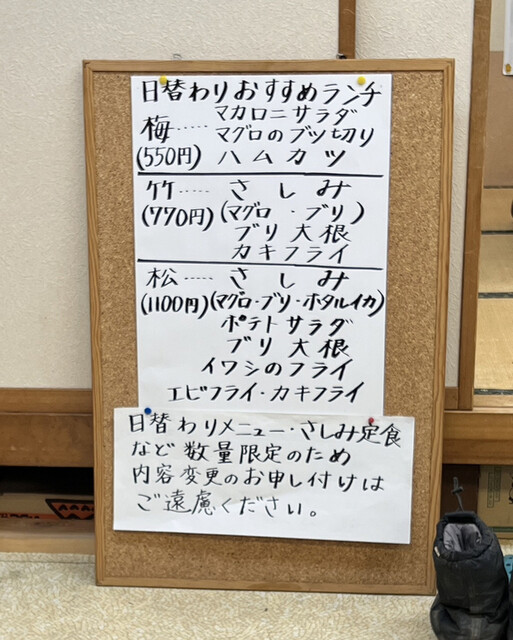 日替わりおすすめランチ
マカロニサラダ
梅……マグロのブツ切り
(550円) ハムカツ
竹…… さしみ
(770円) (マグロ・ブリ)
ブリ大根
カキフライ
松…… さしみ
(1100円)(マグロ・ブリ・ホタルイカ)
ポテトサラダ
ブリ大根
イワシのフライ
エビフライ・カキフライ
日替わりメニュー・さしみ定食
など数量限定のため
内容変更のお申し付けは
ご遠慮ください。